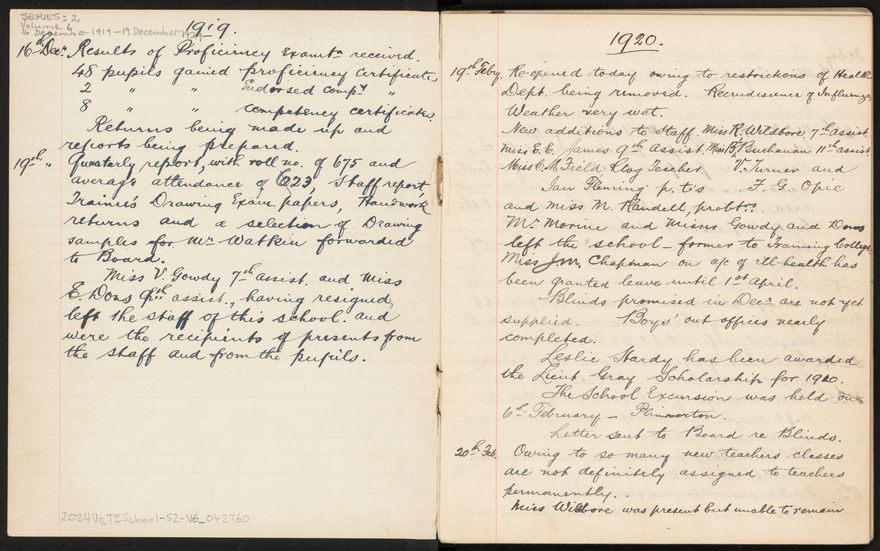 SERIES: 2
Volume 6
16 December 1919 - 19 December 1924
1919.
16th Decr. Results of Proficiency Examtn received.
48 pupils gained proficiency certificates
2 " " Endorsed compy "
8 " " competency certificates.
Returns being made up and
reports being prepared.
19th " Quarterly report, with roll no. of 675 and
average attendance of 623, Staff report,
Trainee's Drawing Exam. papers, Handwork
returns and a selection of Drawing
samples for Mr Watkin forwarded
to Board.
Miss V. Gowdy 7th assist. and Miss
E. Dons assist., having resigned,
left the staff of this school and
were the recipients of presents from
the staff and from the pupils.
2024Va_TESchool-S2-V6_042760
1920.
19th Feby. Re-opened today owing to restrictions of Health
Dept. being removed. Recrudescence of Influenza.
Weather very wet.
New additions to Staff. Miss R. Wilbore, 7th assist,
Miss E. C. James 9th Assist, Miss Buchanan 11th assist
Miss C. M. Field Rlvg Teacher. V. Turner and
Ian Fleming p. t's F. G. Opie
and Miss M. Randell, probtrs.
Mr. Morine and Misses Gowdy and Dons
left the school - former to Training College.
Miss J.M. Chapman on a/c of ill-health has
been granted leave until 1st April.
Blinds promised in Decr are not yet
supplied. Boys' out offices nearly
completed.
Leslie Hardy has been awarded
the Lieut. Gray Scholarship for 1920.
The School Excursion was held on
6th February - Plimmerton.
Letter sent to Board re Blinds.
20th Feb. Owing to so many new teachers classes
are not definitely assigned to teachers
permanently..
Miss Wilbore was present but unable to remain